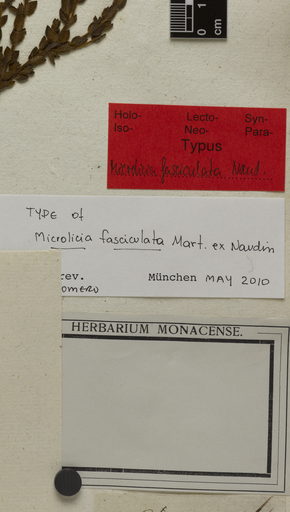 0 1
cm
Holo- Lecto- Syn-
Iso- Neo- Para-
Typus
Microlicia fasciculata Naud.
TYPE of
Microlicia fasciculata Mart. ex Naudin
rev. München MAY 2010
OMERO
HERBARIUM MONACENSE.